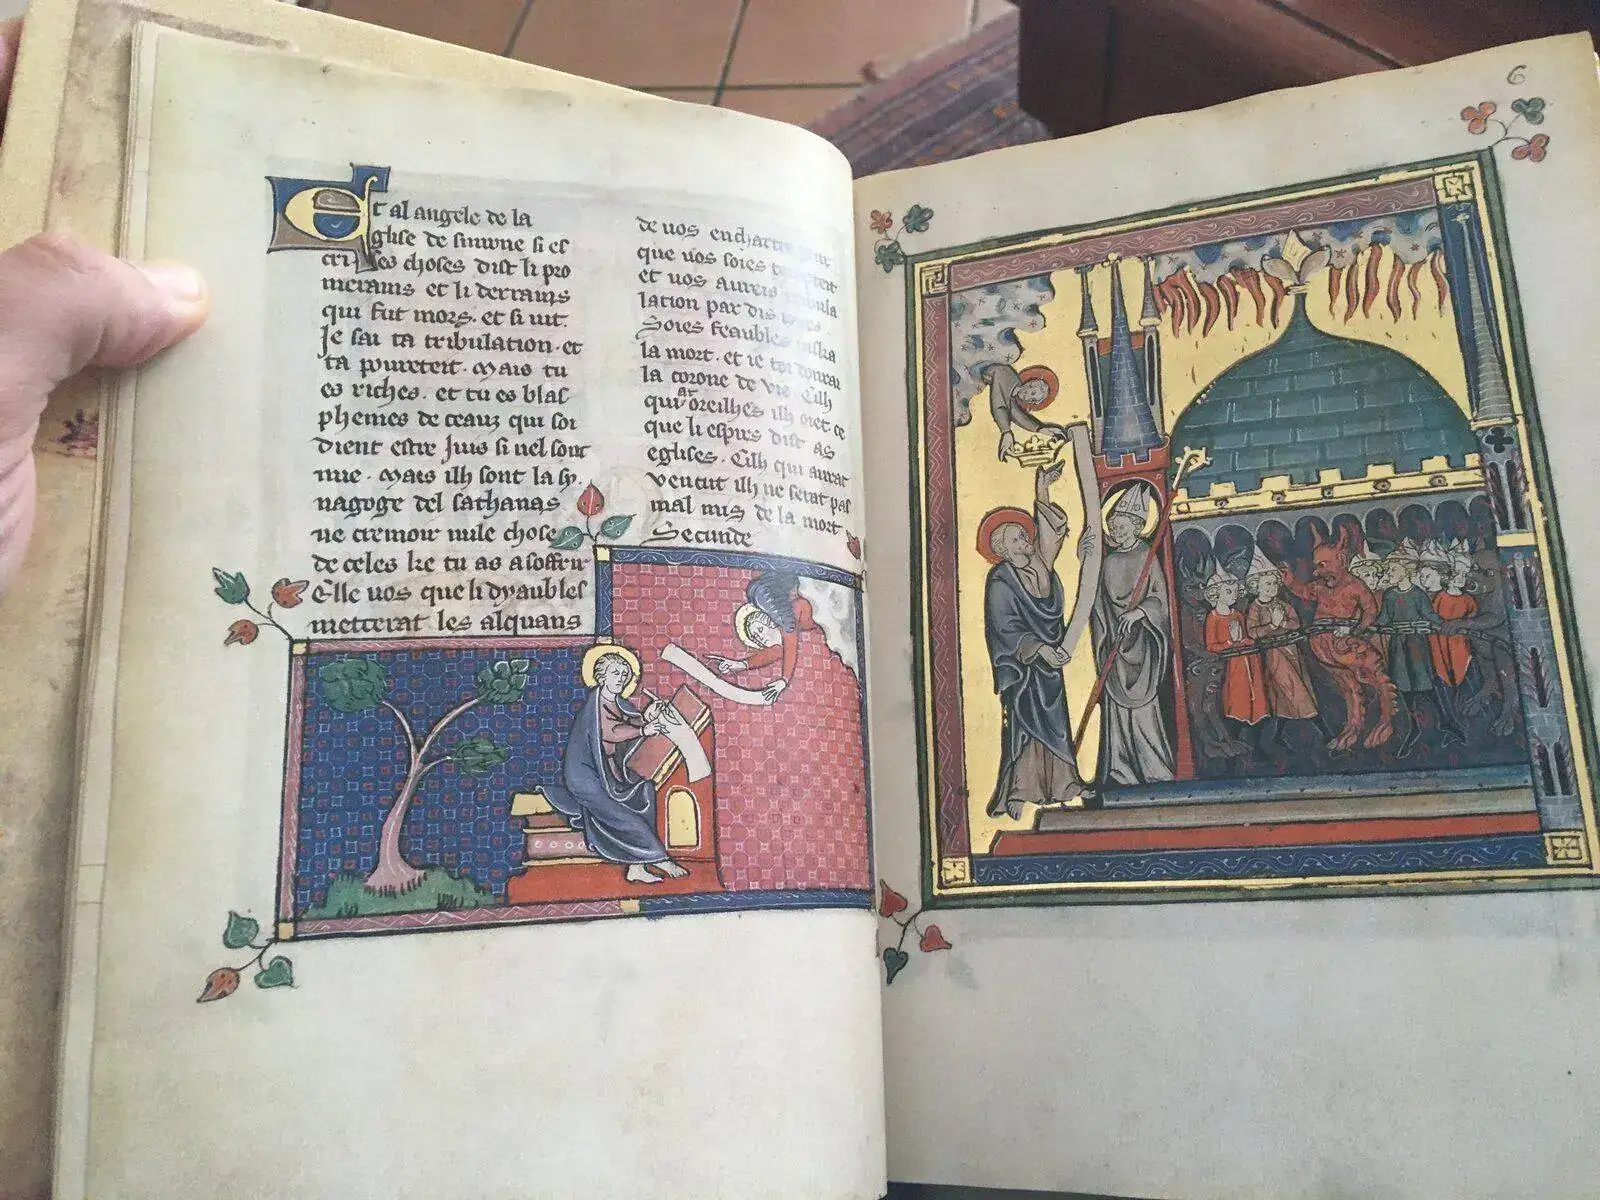 Et al angele de la
glise de smirne si es
cri les choses dist li pro
merains et li derrains
qui fut mors. et si vit.
Je sai ta tribulation. et
ta poureteit. Mais tu
es riches. et tu es blas
phemes de ceauz qui soi
dient estre Juis si nel sont
mie. Mais ilh sont la sy
nagoge del sathanas
ne cremoir nule chose
de celes ke tu as a soffrir
Elle vos que li dyaubles
metterat les alquans
de vos en chartre
que vos soies
et vos aureis
lation par dis
Soies feaubles
la mort. et ie toi donrai
la corone de vie Cilh
qui at oreilhes ilh oiet ce
que li espirs dist as
eglises. Cilh qui aurat
vencut ilh ne serat pas
mal mis de la mort
Secunde
6